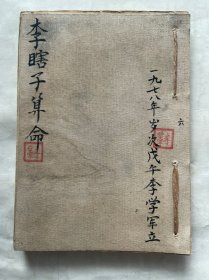 李瞎子算命
一九七八年岁次戊午李学军立
六